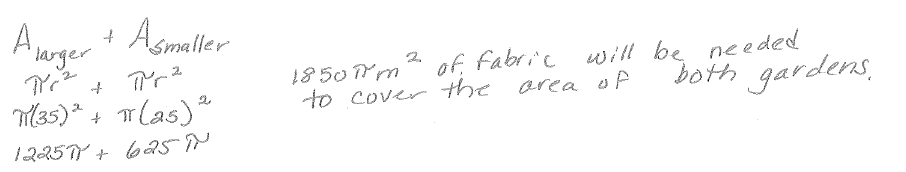 A larger + A smaller
πr² + πr²
π(35)² + π(25)²
1225π + 625π
1850πm² of fabric will be needed
to cover the area of both gardens.